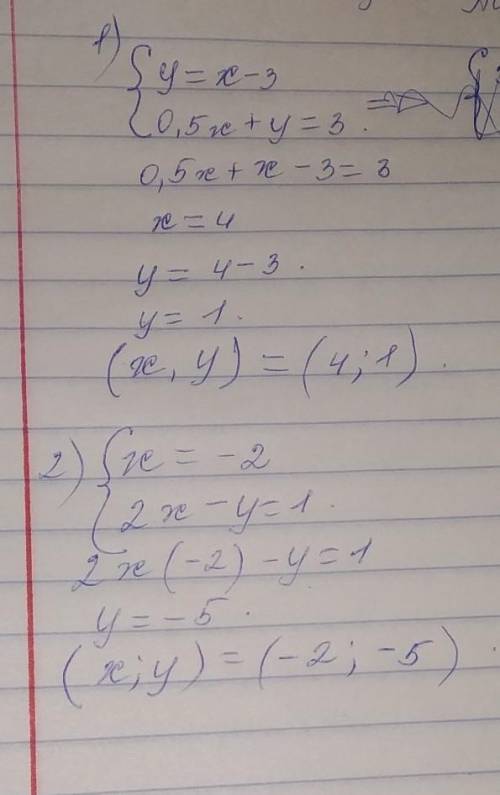 1) { y = x - 3
0,5x + y = 3. =>
0,5x + x - 3 = 3
x = 4
y = 4 - 3.
y = 1.
(x, y) = (4; 1).
2) { x = -2
2x - y = 1.
2x(-2) - y = 1
y = -5.
(x; y) = (-2; -5).